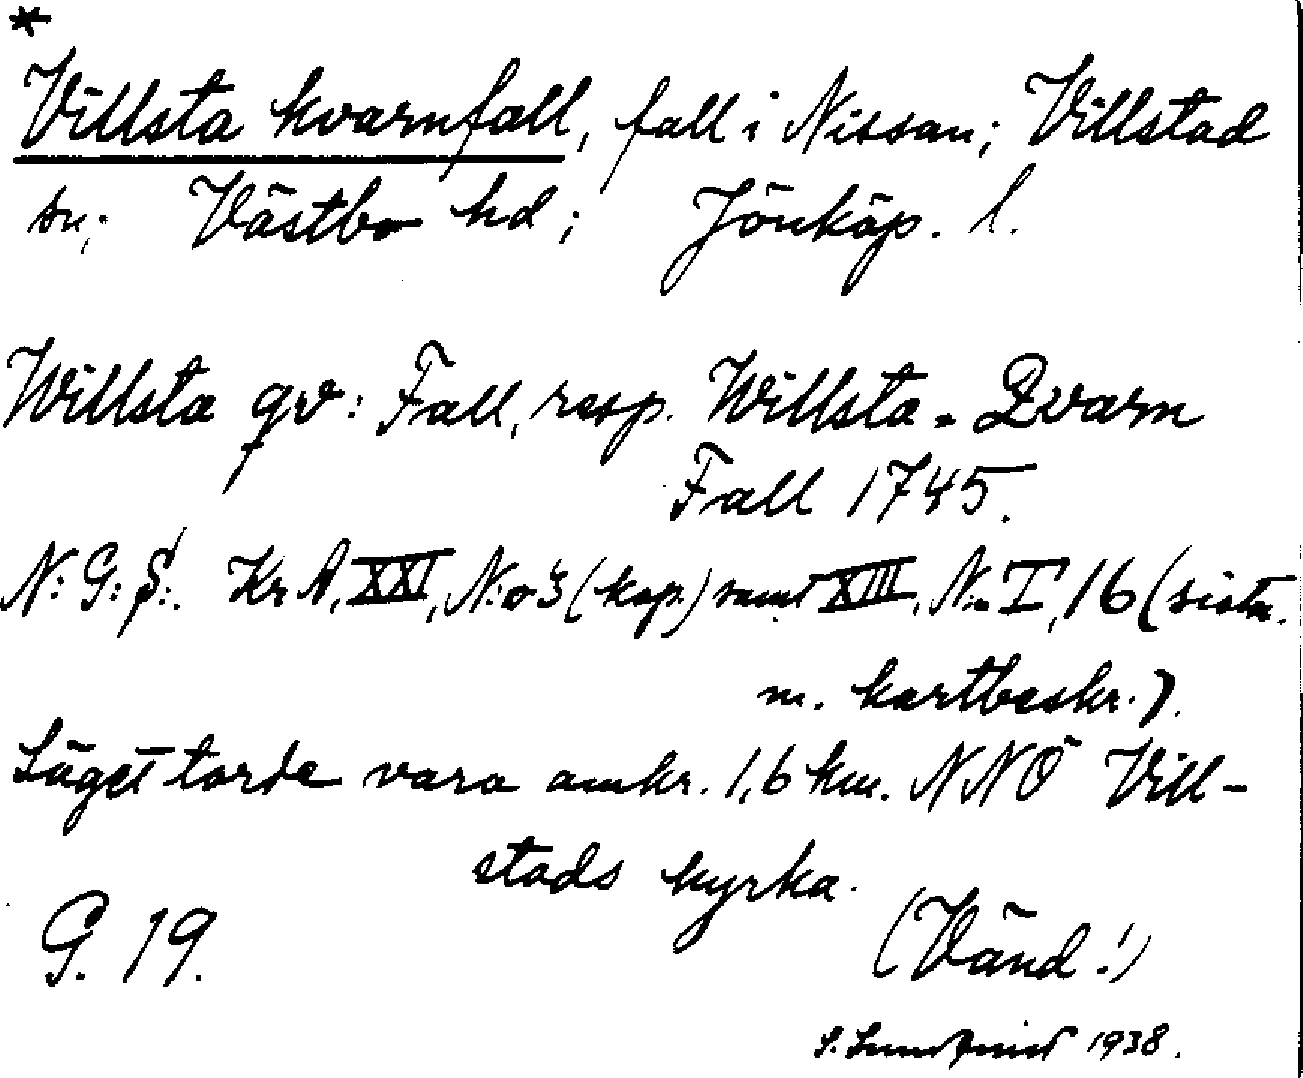 *
Villsta kvarnfall, fall i Nissan; Villstad
sn; Västbo hd; Jönköp. l.
Willsta qv: Fall, resp. Willsta-Qvarn
Fall 1745.
N:G:S:. Kr.A. XXI, N:o 3 (kop.) samt XIII, N:o I, 16 (sistn.
m. kartbeskr.).
Läget torde vara omkr. 1,6 km. NNÖ Vill-
stads kyrka.
G. 19.
(Vänd!)
S. Lundquist 1938.